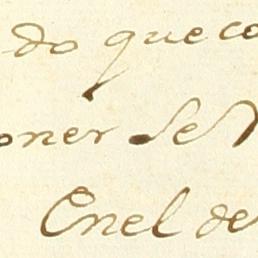 do que co
oner Se
Enel de